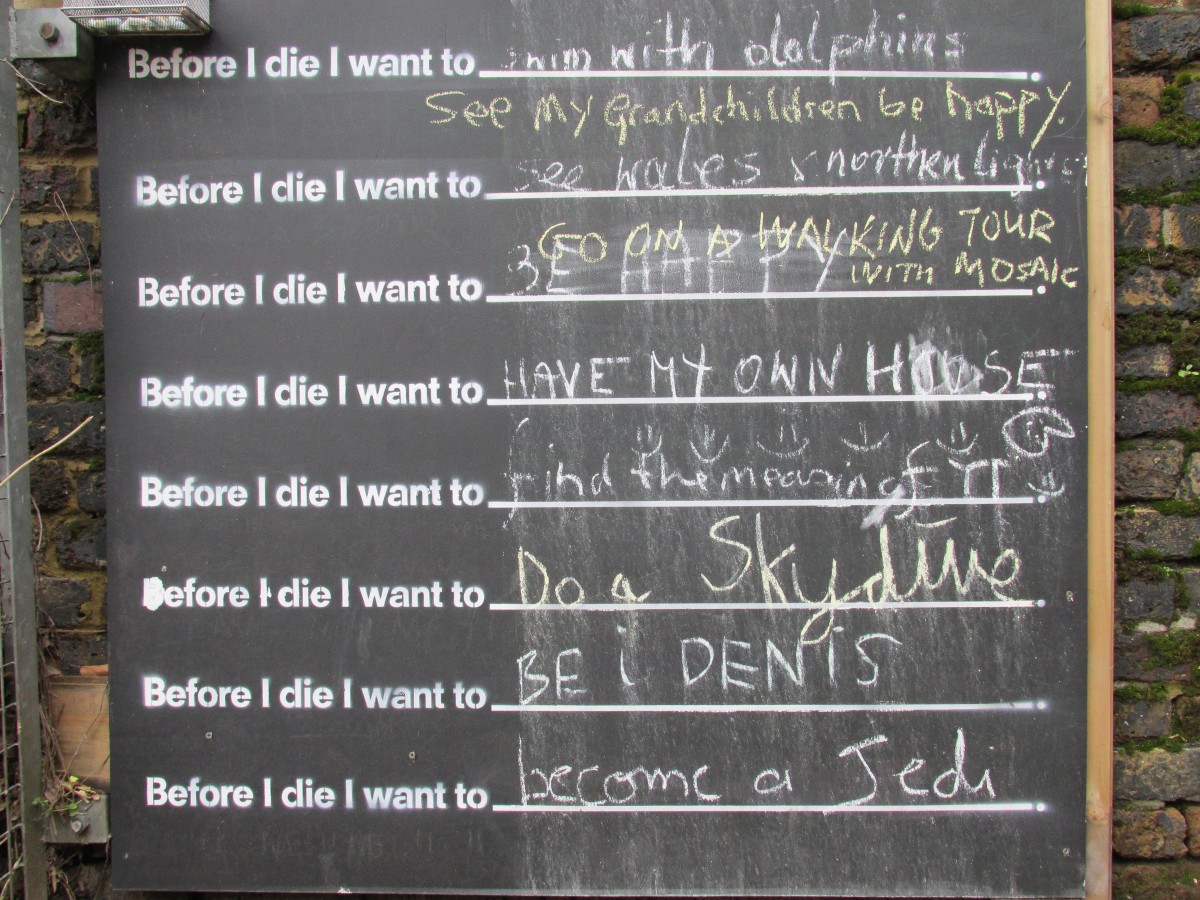 Before I die I want to swim with dolphins.
See My Grandchildren be happy.
Before I die I want to see wales & northen lights.
GO ON A WALKING TOUR
WITH MOSAIC
Before I die I want to BE HAPPY.
Before I die I want to HAVE MY OWN HOUSE.
Before I die I want to find the meaning of.
Before I die I want to Do a Skydive.
Before I die I want to BE i DENiS.
Before I die I want to become a Jedi.